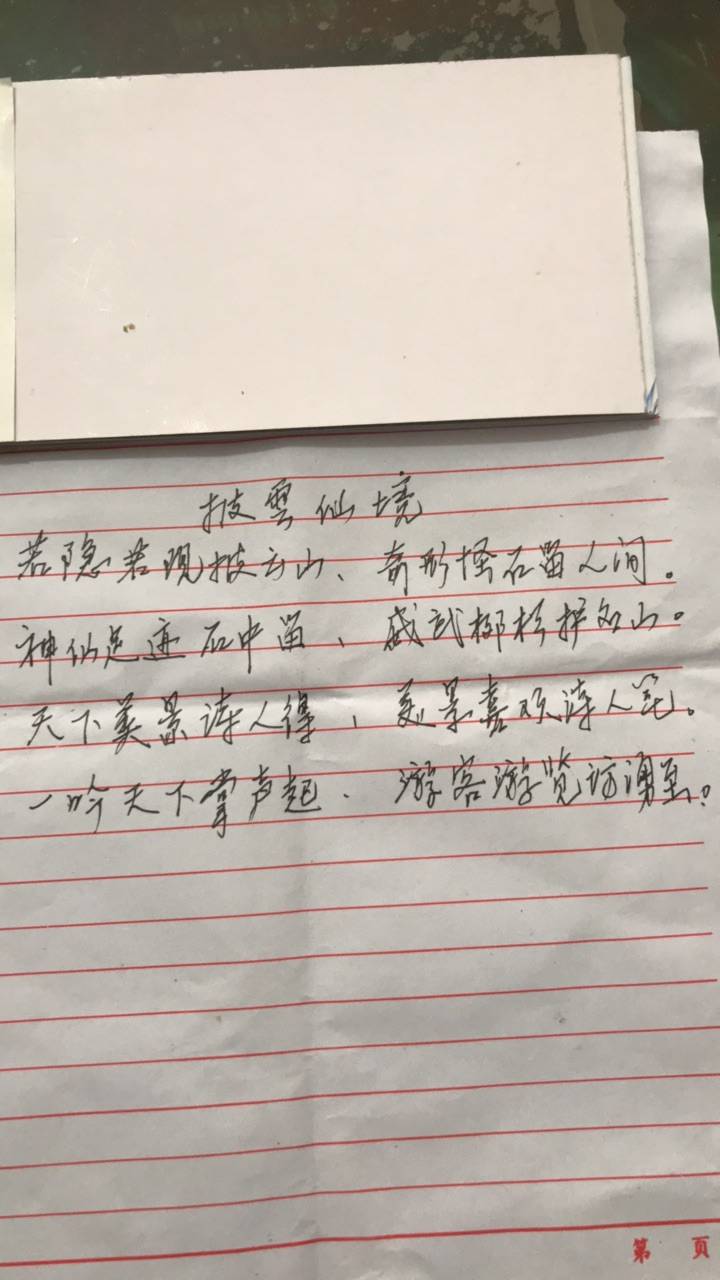 披雲仙境
若隐若现披云山、奇形怪石留人间。
神仙足迹石中留、威武柳杉护名山。
天下美景诗人得，美景喜欢诗人笔。
一吟天下掌声起、游客游览访涌至。
第 页